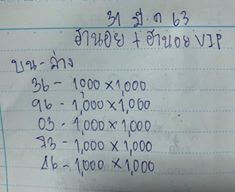 31 มี.ค 63
ฮานอย + ฮานอย VIP
บน - ล่าง
36 - 1000 × 1,000
96 - 1,000 × 1,000
03 - 1,000 × 1,000
93 - 1,000 × 1,000
26 - 1,000 × 1,000